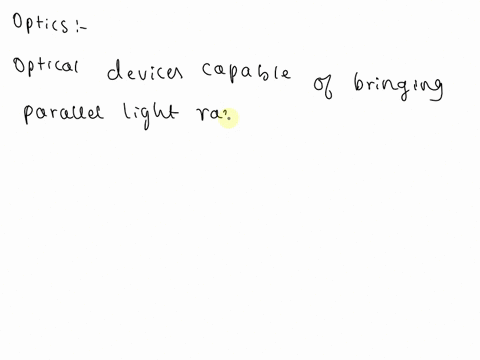 Optics:-
Optical devices capable of bringing
parallel light ra